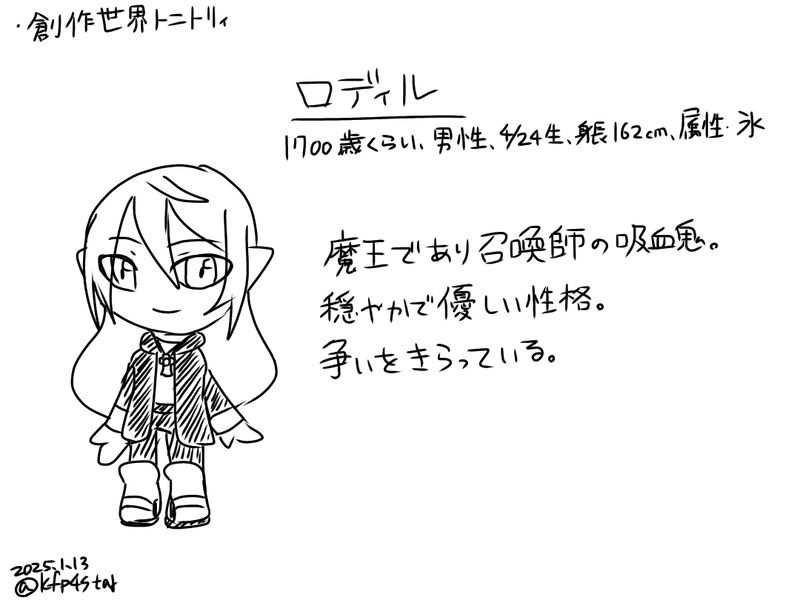 ・創作世界トニトリィ
ロディル
1700歳くらい、男性、4/24生、身長162cm、属性・氷
魔王であり召喚師の吸血鬼。
穏やかで優しい性格。
争いをきらっている。
2025.1.13
@kfp4star